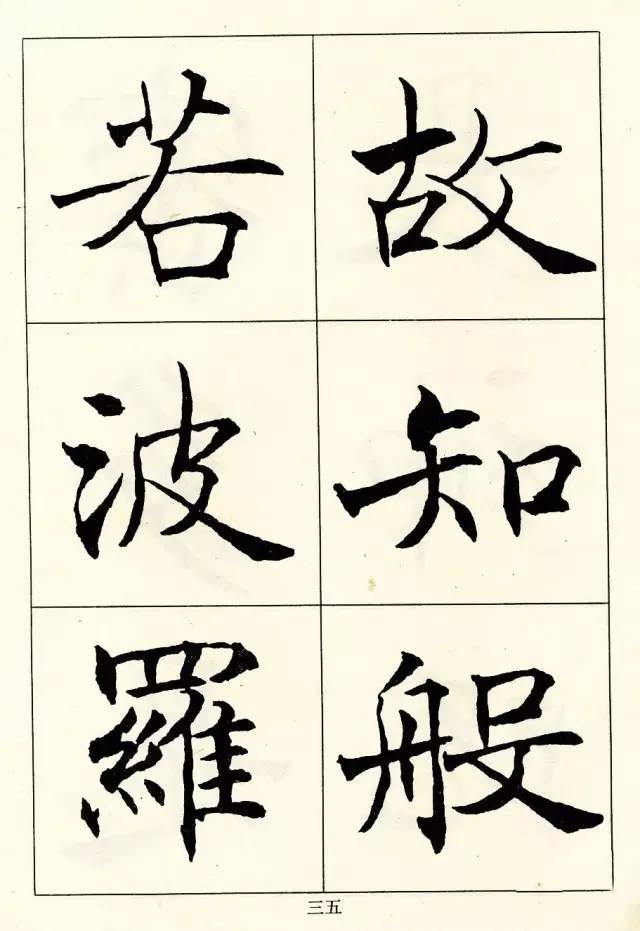 故知般
若波羅
三五